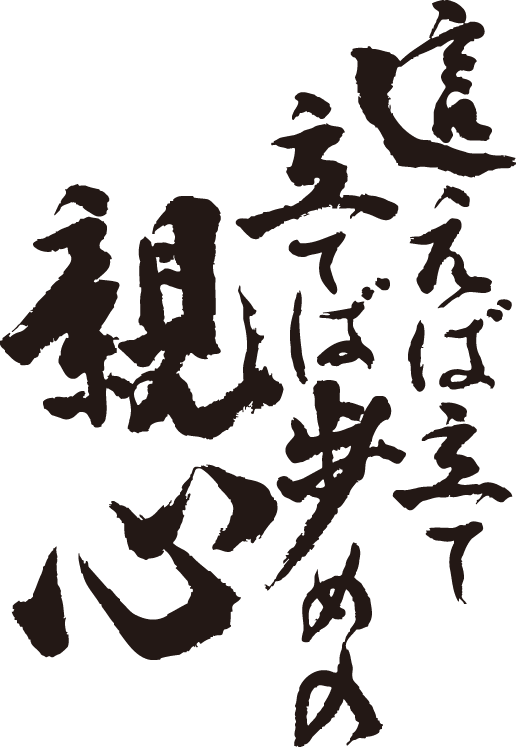 這えば立て
立てば歩めの
親心